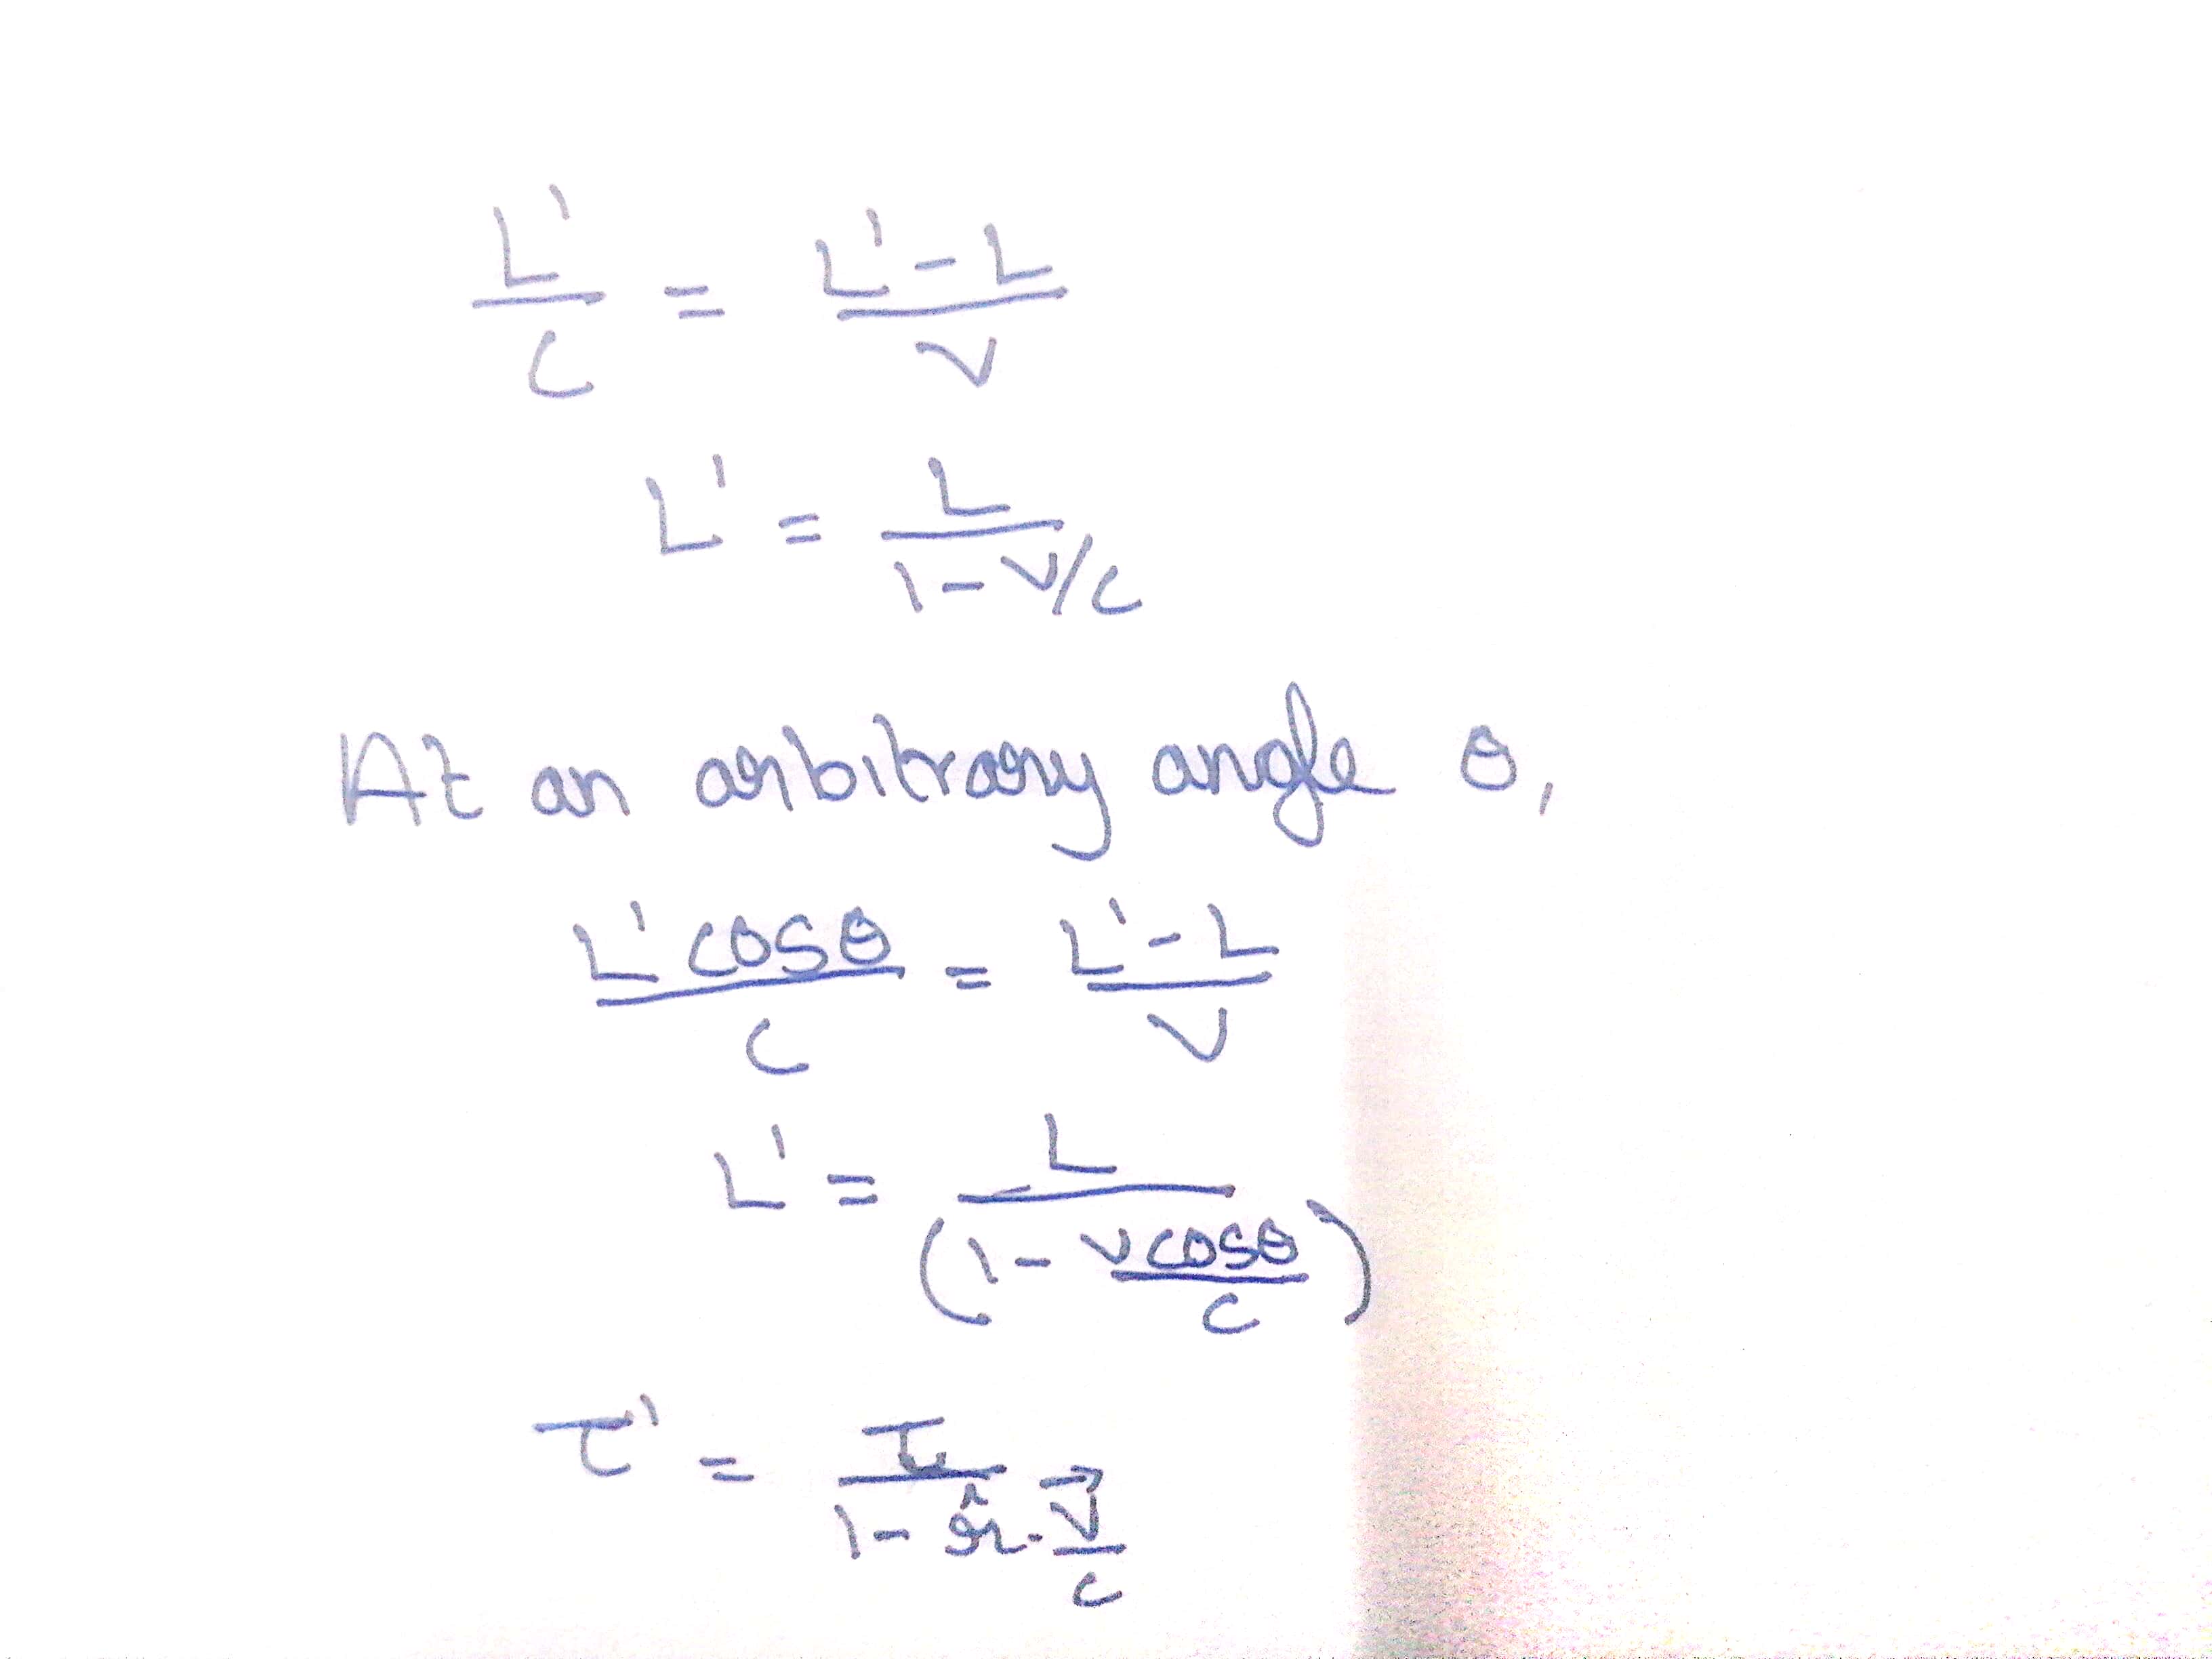 L'/c = (L' - L)/v
L' = L/(1 - v/c)
At an arbitrary angle θ,
L' cosθ/c = (L' - L)/v
L' = L/(1 - v cosθ/c)
τ' = τ/(1 - r̂·v⃗/c)